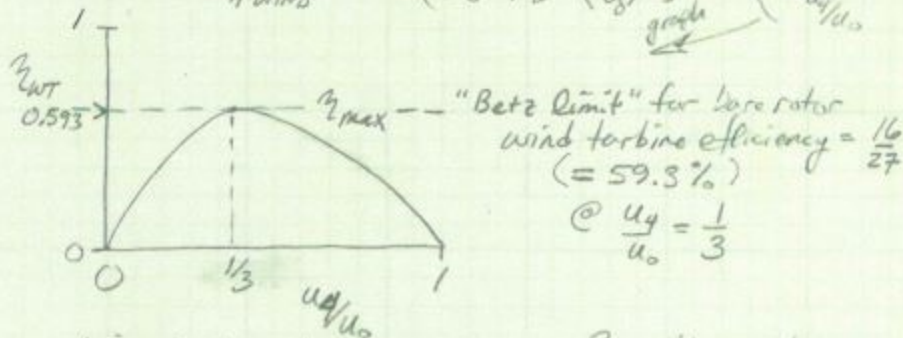 graph
u₄/u₀
1
η_WT
0.593
η_max -- "Betz limit" for bare rotor
wind turbine efficiency = 16/27
(= 59.3%)
@ u₄/u₀ = 1/3
0
0 1/3 1
u₄/u₀